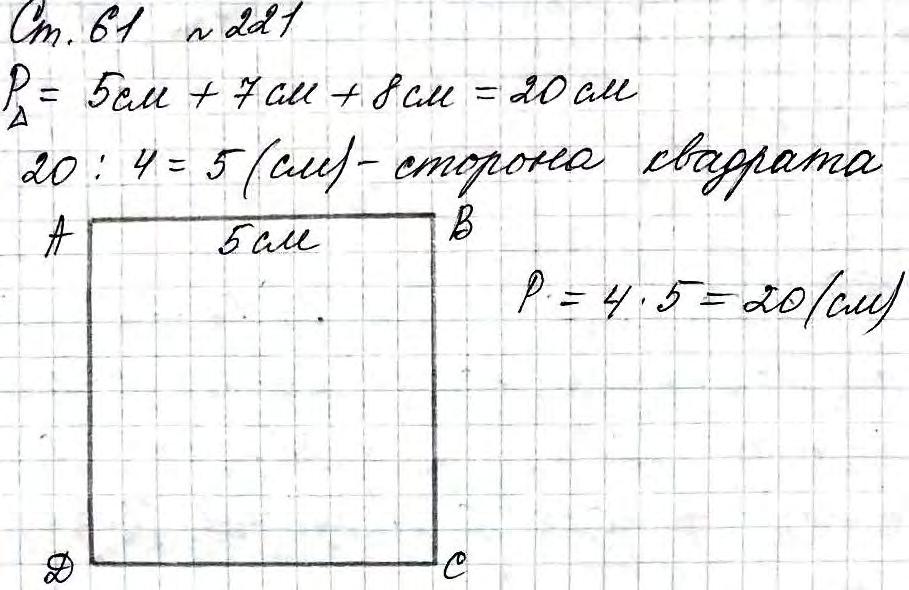 Ст. 61 № 221
P△ = 5см + 7см + 8см = 20см
20 : 4 = 5 (см) - сторона квадрата
А 5см В
P = 4 · 5 = 20 (см)
Д С